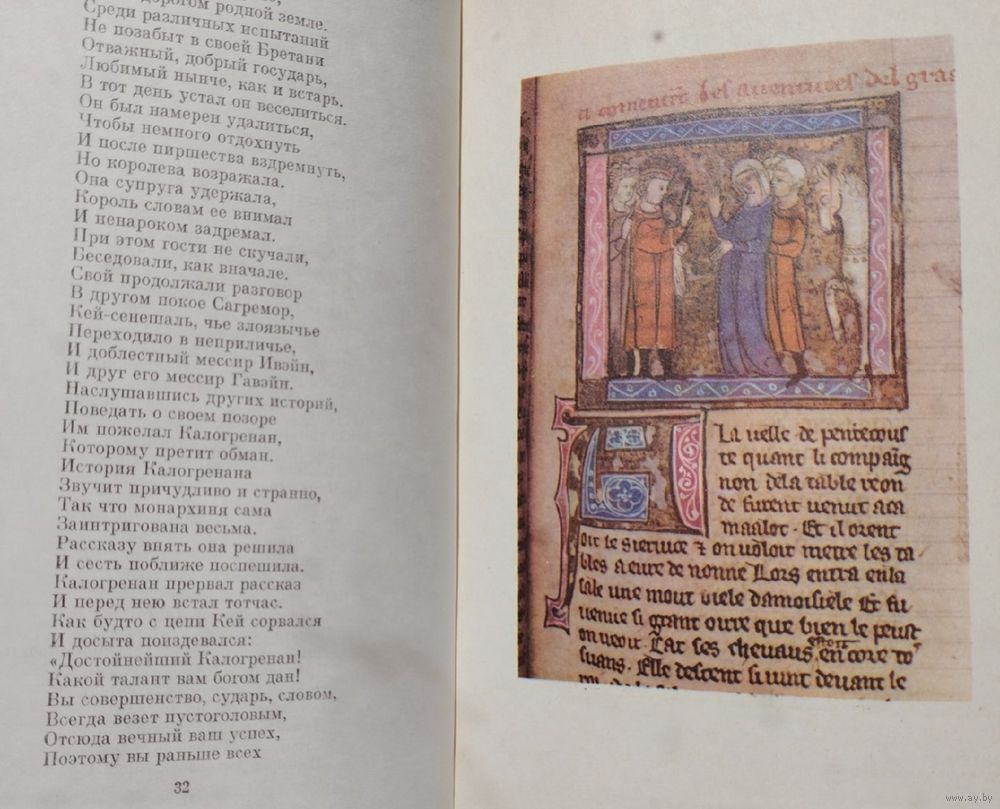 дорогом родной земле.
Среди различных испытаний
Не позабыт в своей Бретани
Отважный, добрый государь,
Любимый нынче, как и встарь.
В тот день устал он веселиться.
Он был намерен удалиться,
Чтобы немного отдохнуть
И после пиршества вздремнуть,
Но королева возражала.
Она супруга удержала,
Король словам ее внимал
И ненароком задремал.
При этом гости не скучали,
Беседовали, как вначале.
Свой продолжали разговор
В другом покое Сагремор,
Кей-сенешаль, чье злоязычье
Переходило в неприличье,
И доблестный мессир Ивэйн,
И друг его мессир Гавэйн.
Наслушавшись других историй,
Поведать о своем позоре
Им пожелал Калогренан,
Которому претит обман.
История Калогренана
Звучит причудливо и странно,
Так что монархиня сама
Заинтригована весьма.
Рассказу внять она решила
И сесть поближе поспешила.
Калогренан прервал рассказ
И перед нею встал тотчас.
Как будто с цепи Кей сорвался
И досыта поиздевался:
«Достойнейший Калогренан!
Какой талант вам богом дан!
Вы совершенство, сударь, словом,
Всегда везет пустоголовым,
Отсюда вечный ваш успех,
Поэтому вы раньше всех
32
del graa
La uelle de pentecous
te quant li compaig
non de la table reon
de furent uenut a ca
maalot. Et il orent
oit le seruice & on uoloit metre les ta
bles a eure de nonne Lors entra en la
sale une mout biele damoisiele Et fu
uenue si grant oirre que bien le peust
on ueoir. Car ses cheuaus estoit encore to
suans. Elle descent si uint deuant le
www.ay.by